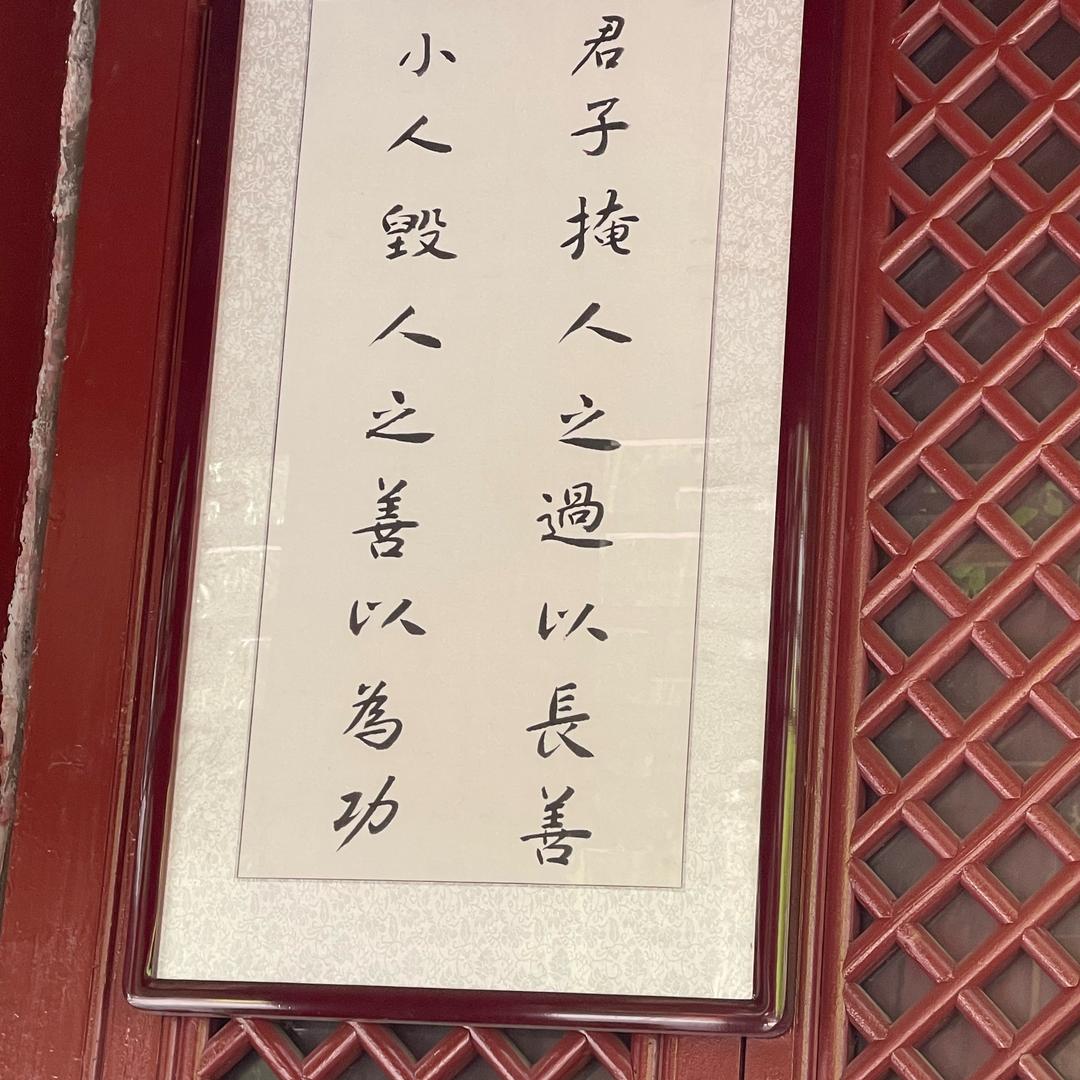 君子掩人之過以長善
小人毀人之善以為功